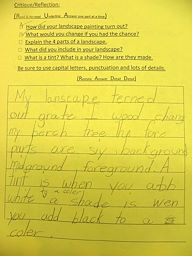 Critique/Reflection:
(Read to be read. Underline. Answer one part at a time)
How did your landscape painting turn out?
What would you change if you had the chance?
Explain the 4 parts of a landscape.
What did you include in your landscape?
What is a tint? What is a shade? How are they made.
Be sure to use capital letters, punctuation and lots of details.
(Restate Answer Detail Detail)
My lanscape terned
out grate I wood chang
my perch tree hp fore
parts are sky background
midground foreground. A
tint is when you add
white to a color a shade is wen
you add black to a
coler